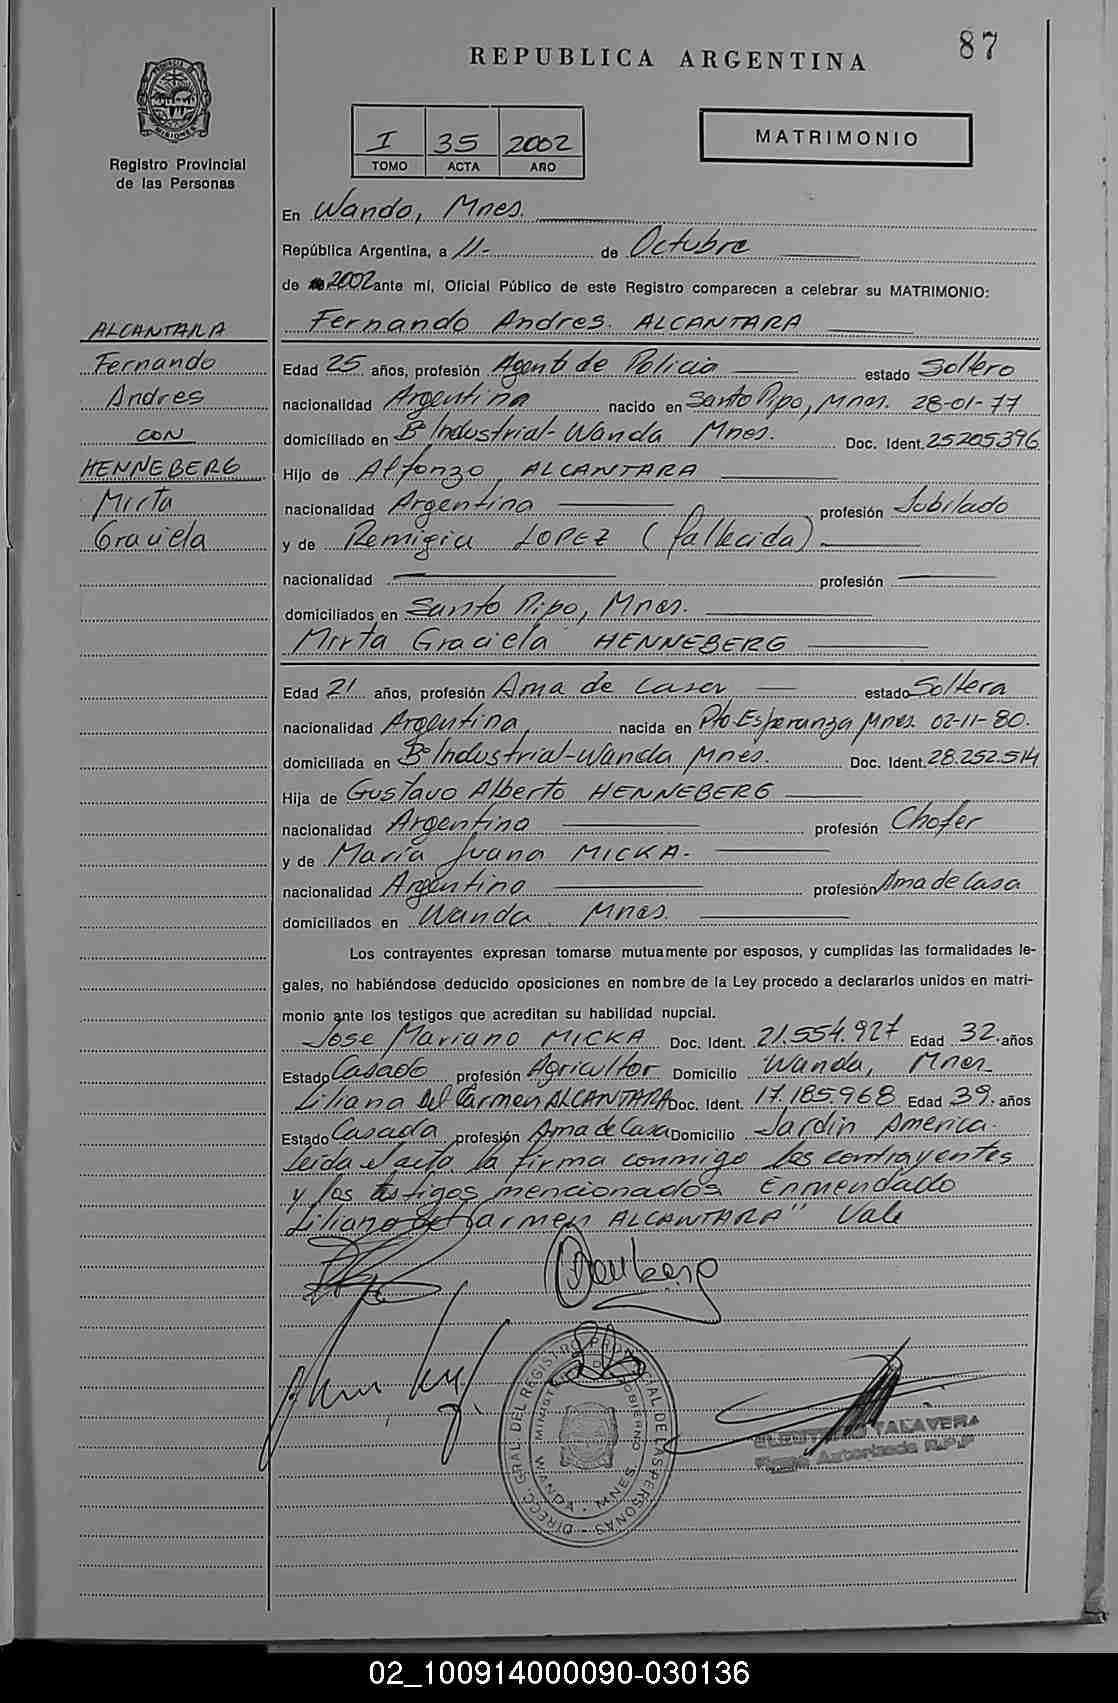 87
REPUBLICA ARGENTINA
I 35 2002
TOMO ACTA AÑO
MATRIMONIO
PROVINCIA DE MISIONES
Registro Provincial
de las Personas
En Wanda, Mnes.
República Argentina, a 11- de Octubre
de 2002 ante mí, Oficial Público de este Registro comparecen a celebrar su MATRIMONIO:
Fernando Andres ALCANTARA
ALCANTARA
Fernando
Andres
CON
HENNEBERG
Mirta
Graciela
Edad 25 años, profesión Agente de Policia estado Soltero
nacionalidad Argentina nacido en Santo Pipo, Mnes. 28-01-77
domiciliado en Bº Industrial-Wanda Mnes. Doc. Ident. 25205396
Hijo de Alfonzo ALCANTARA
nacionalidad Argentina profesión Jubilado
y de Remigia LOPEZ (fallecida)
nacionalidad profesión
domiciliados en Santo Pipo, Mnes.
Mirta Graciela HENNEBERG
Edad 21 años, profesión Ama de casa estado Soltera
nacionalidad Argentina nacida en Pto Esperanza Mnes. 02-11-80.
domiciliada en Bº Industrial-Wanda Mnes. Doc. Ident. 28.252.514
Hija de Gustavo Alberto HENNEBERG
nacionalidad Argentina profesión Chofer
y de Maria Juana MICKA.
nacionalidad Argentina profesión Ama de Casa
domiciliados en Wanda, Mnes.
Los contrayentes expresan tomarse mutuamente por esposos, y cumplidas las formalidades le-
gales, no habiéndose deducido oposiciones en nombre de la Ley procedo a declararlos unidos en matri-
monio ante los testigos que acreditan su habilidad nupcial.
Jose Mariano MICKA Doc. Ident. 21.554.927 Edad 32 años
Estado Casado profesión Agricultor Domicilio Wanda, Mnes
Liliana del Carmen ALCANTARA Doc. Ident. 17.185.968 Edad 39 años
Estado Casada profesión Ama de Casa Domicilio Jardin America.
Leida el acta la firma conmigo los contrayentes
y los testigos mencionados Enmendado
Liliana del Carmen ALCANTARA" Vale
DIRECC. GRAL. DEL REGISTRO PROVINCIAL DE LAS PERSONAS
MINISTERIO DE GOBIERNO
WANDA - MNES
TALAVERA
Autorizada R.P.P
02_100914000090-030136